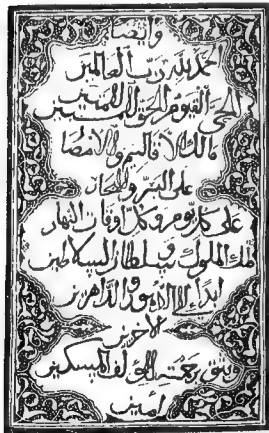 وايضا
الحمد لله رب العالمين
الحي القيوم الحق المبين
مالك الافاليم والامصا
على البر والبحار
على كل يوم وكل اوقات النهار
ملك الملوك وسلطان السلاطين
ابداء الابدين و الداهرين
الاخرين
رحمته المولف المسكين
امين